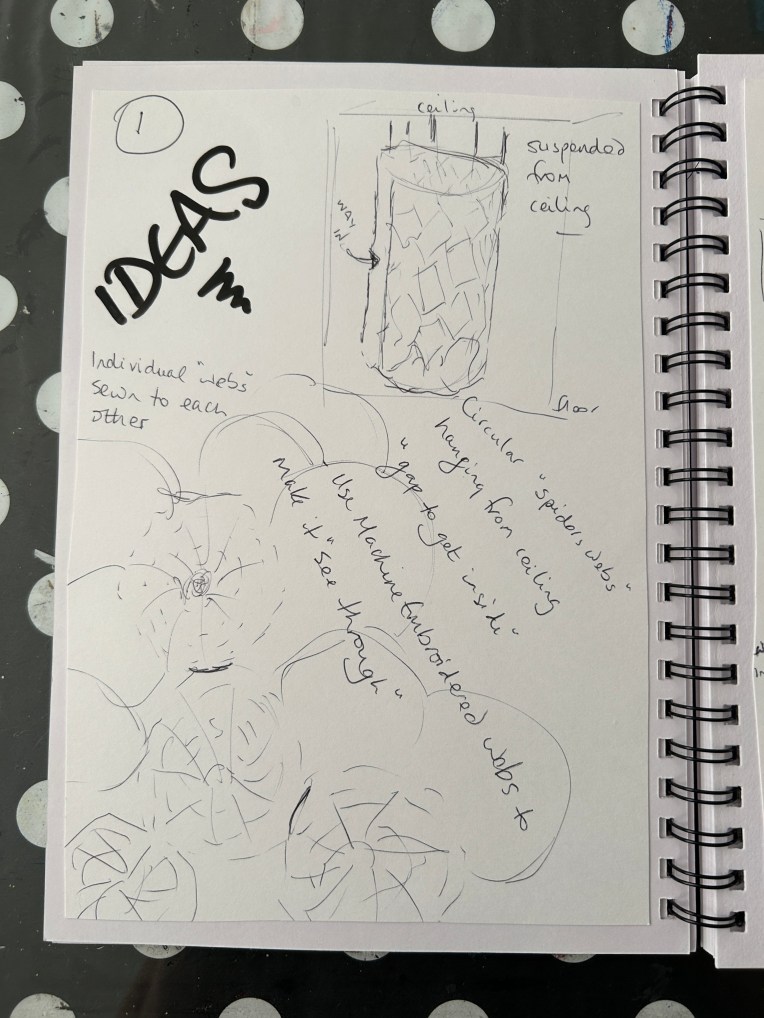 1
IDEAS
ceiling
suspended
from
ceiling
WAY
IN
floor
Individual "webs"
sewn to each
other
Circular "spiders webs"
hanging from ceiling
"gap to get inside"
Use Machine Embroidered webs to
make it "see through"